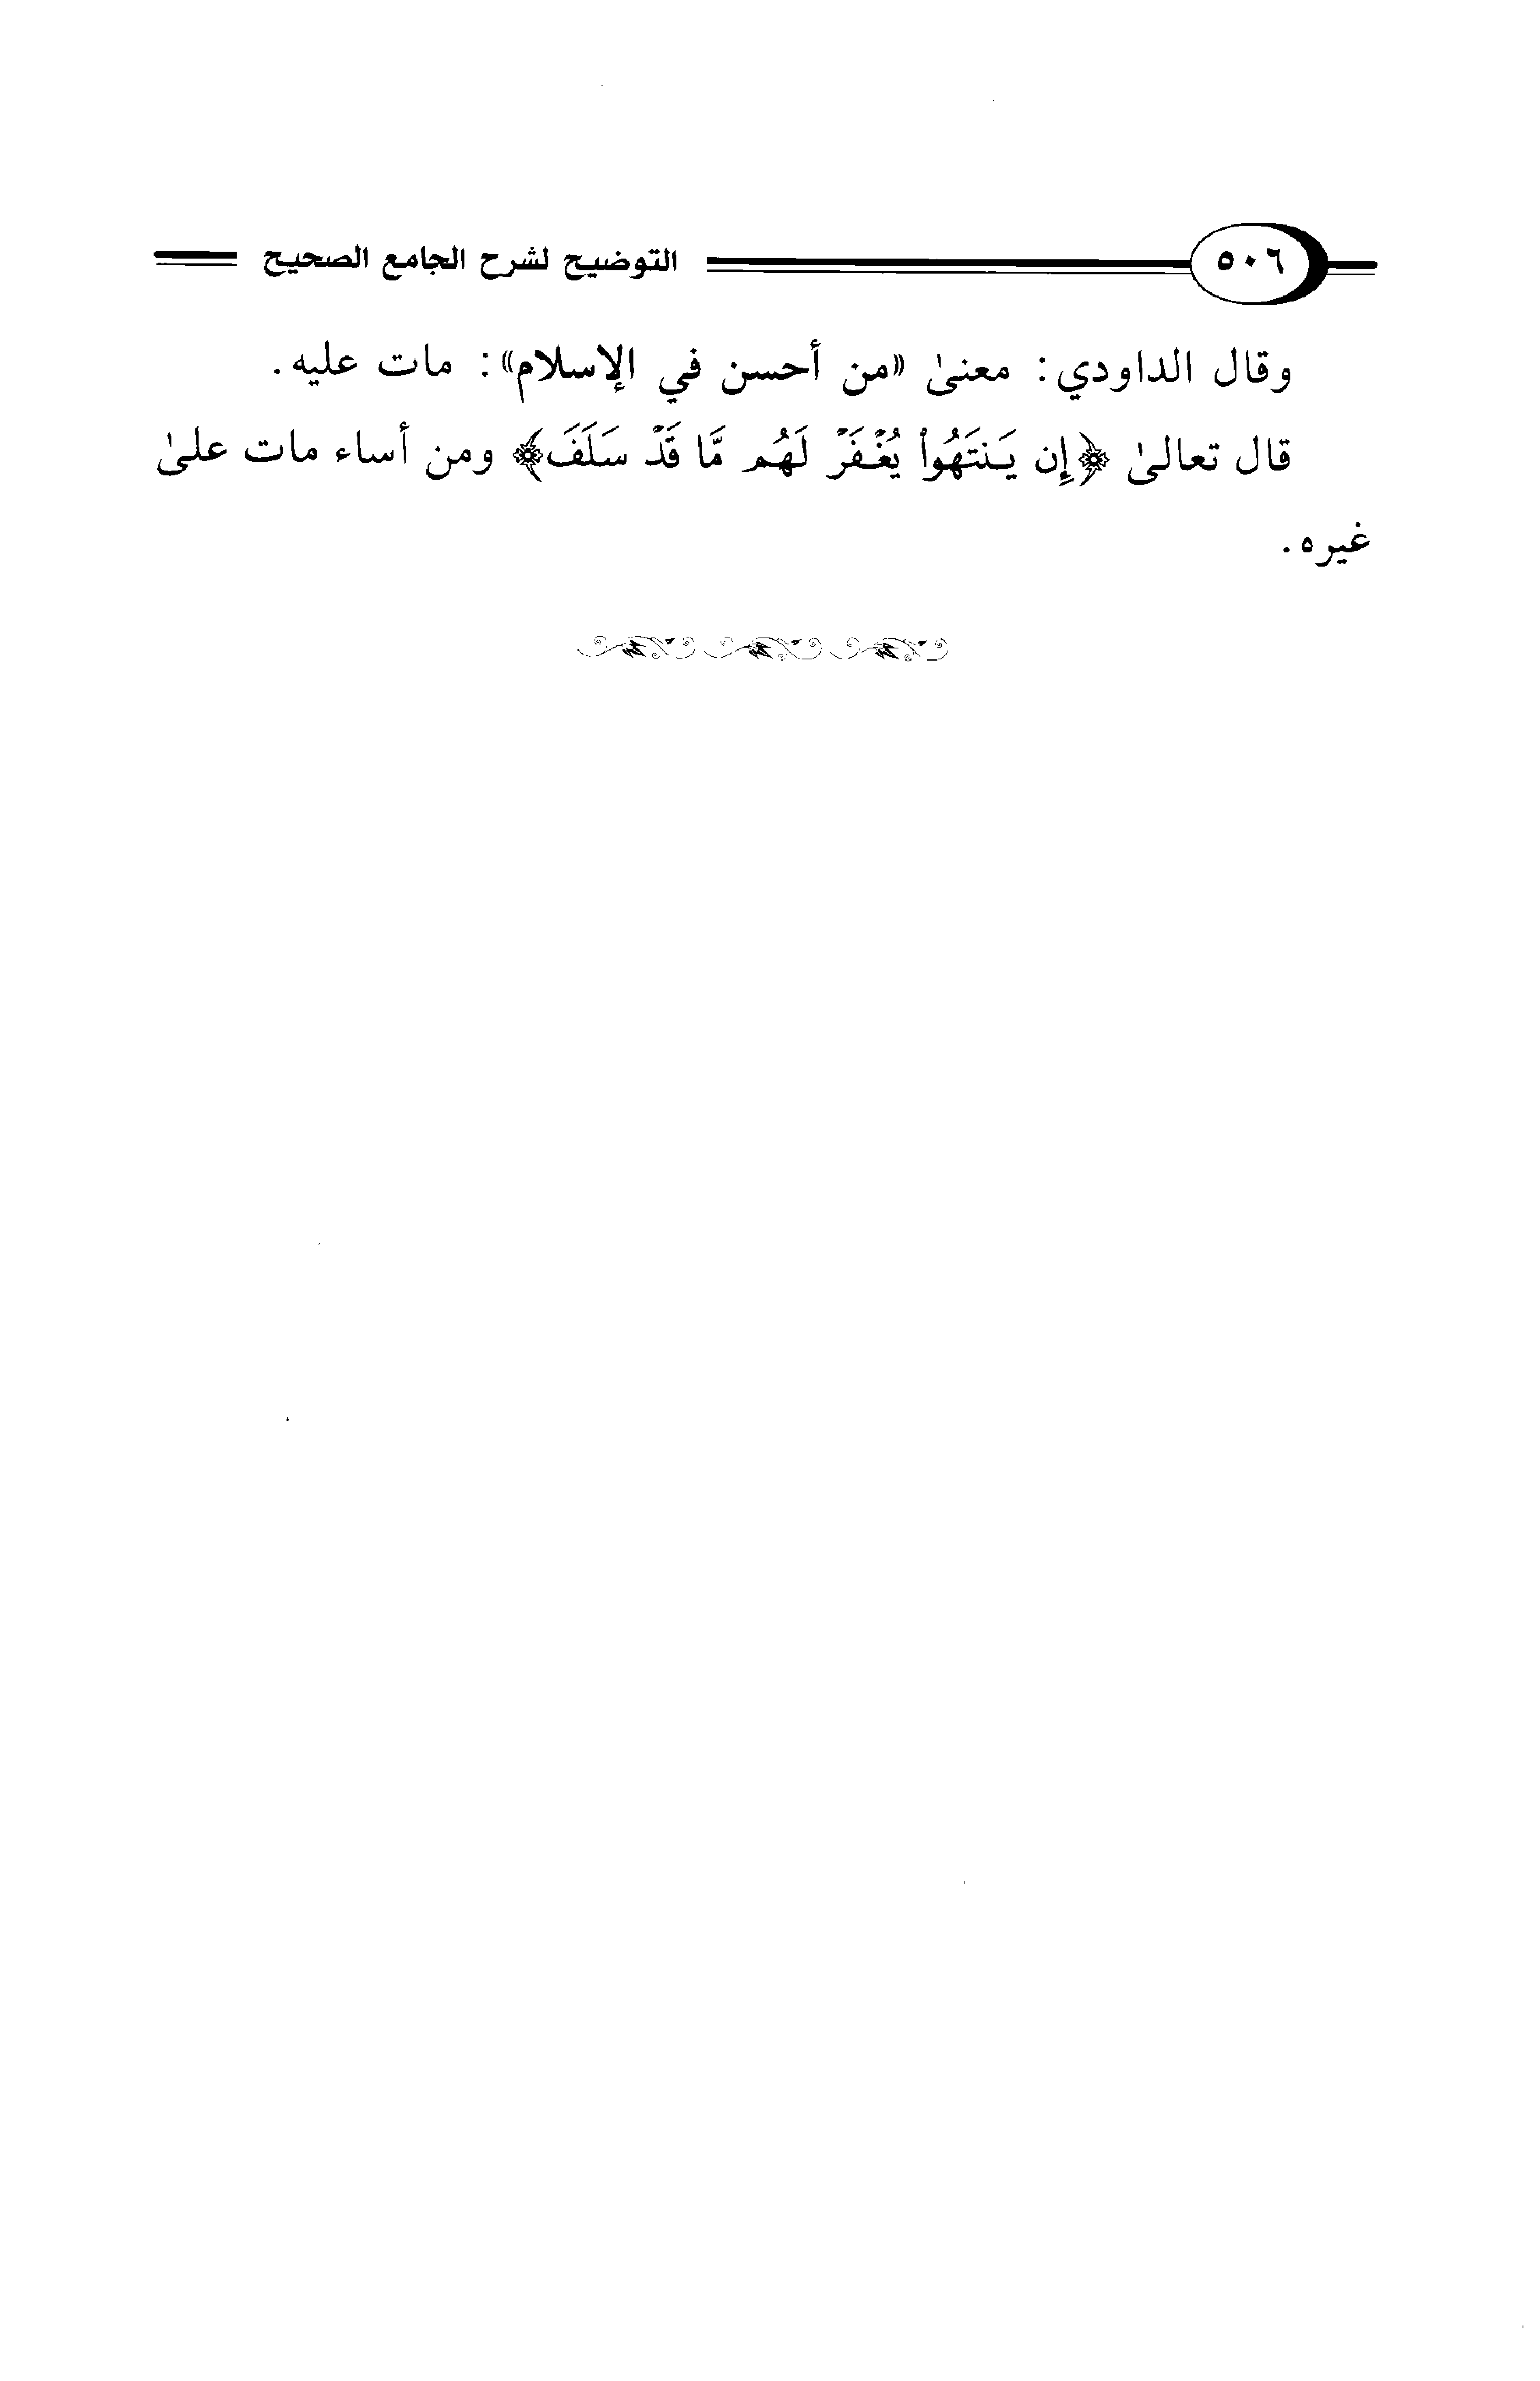 ٥٠٦ التوضيح لشرح الجامع الصحيح
وقال الداودي: معنىٰ «من أحسن في الإسلام»: مات عليه.
قال تعالىٰ ﴿إِن يَنتَهُوا۟ يُغۡفَرۡ لَهُم مَّا قَدۡ سَلَفَ﴾ ومن أساء مات علىٰ
غيره.